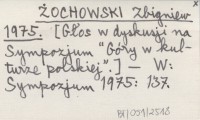 ŻOCHOWSKI Zbigniew
1975. [Głos w dyskusji na
Sympozjum "Góry w kul-
turze polskiej".] — W:
Sympozjum 1975: 137.